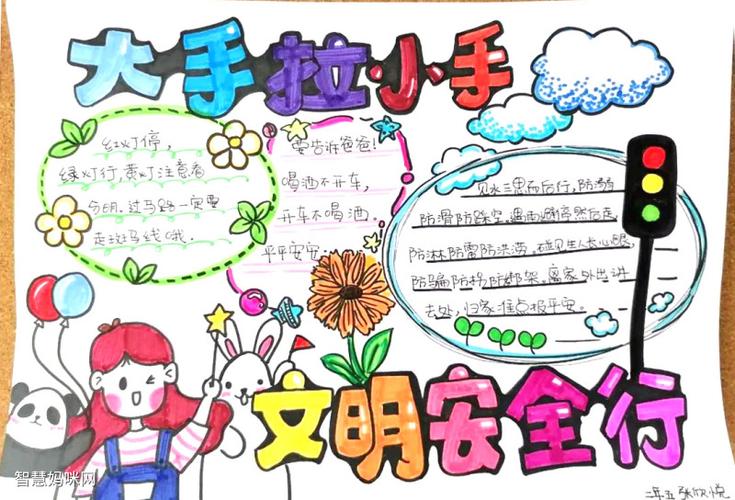 大手拉小手
红灯停,
绿灯行,黄灯注意看
分明.过马路一定要
走斑马线哦.
要告诉爸爸!
喝酒不开车,
开车不喝酒.
平平安安
见水三思而后行,防溺
防滑防踩空.遇雨蹲停然后走
防淋防雷防洪涝.碰见生人长心眼,
防骗防拐防绑架.离家外出讲
去处,归家准点报平安.
文明安全行
智慧妈咪网
张欣悦